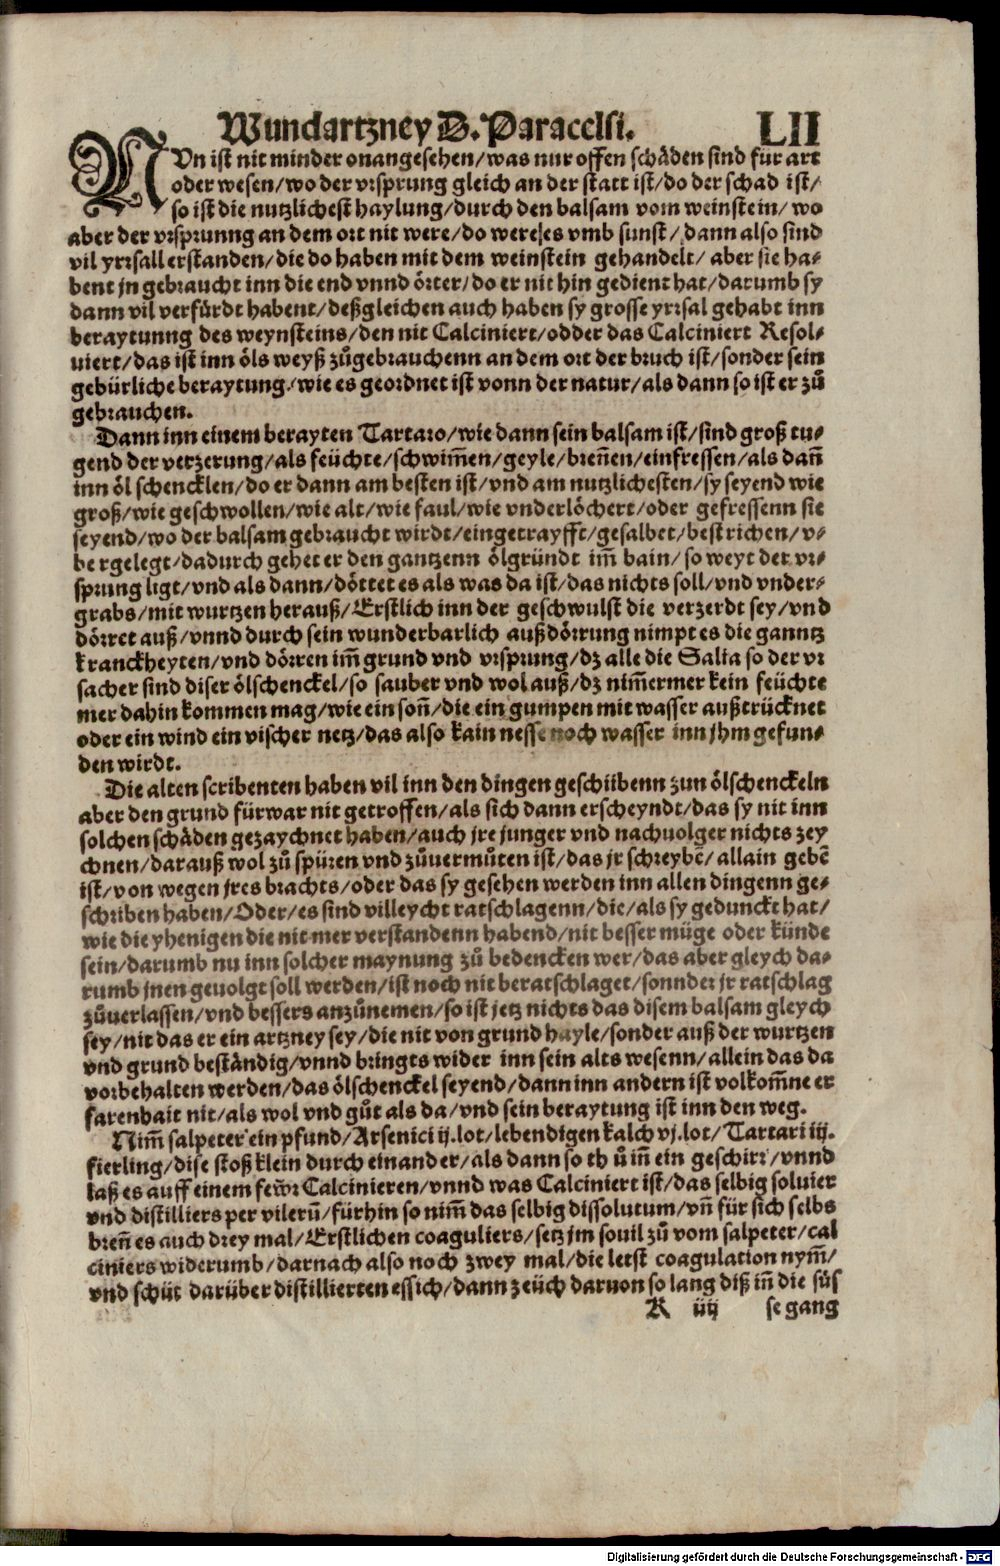 Wundartzney D. Paracelsi. LII
NUn ist nit minder onangesehen/was nur offen schäden sind für art
oder wesen/wo der vrsprung gleich an der statt ist/do der schad ist/
so ist die nutzlichest haylung/durch den balsam vom weinstein/ wo
aber der vrsprunng an dem ort nit were/do were es vmb sunst/ dann also sind
vil yrrsall erstanden/die do haben mit dem weinstein gehandelt/ aber sie ha-
bent jn gebraucht inn die end vnnd örter/do er nit hin gedient hat/darumb sy
dann vil verfürdt habent/deßgleichen auch haben sy grosse yrrsal gehabt inn
beraytunng des weynsteins/den nit Calciniert/odder das Calciniert Resol-
uiert/das ist inn öls weyß zůgebrauchenn an dem ort der bruch ist/sonder sein
gebürliche beraytung/wie es geordnet ist vonn der natur/als dann so ist er zů
gebrauchen.
Dann inn einem berayten Tartaro/wie dann sein balsam ist/sind groß tu-
gend der verzerung/als feüchte/schwim̃en/geyle/breñen/einfressen/als dañ
inn öl schencklen/do er dann am besten ist/vnd am nutzlichesten/sy seyend wie
groß/wie geschwollen/wie alt/wie faul/wie vnderlöchert/oder gefressenn sie
seyend/wo der balsam gebraucht wirdt/eingetrayfft/gesalbet/bestrichen/v-
be rgelegt/dadurch gehet er den gantzenn ölgründt im̃ bain/so weyt der vr-
sprung ligt/vnd als dann/döttet es als was da ist/das nichts soll/vnd vnder-
grabs/mit wurtzen herauß/Erstlich inn der geschwulst die verzerdt sey/vnd
dörret auß/vnnd durch sein wunderbarlich außdörrung nimpt es die ganntz
kranckheyten/vnd dörren im̃ grund vnd vrsprung/dz alle die Salia so der vr
sacher sind diser ölschenckel/so sauber vnd wol auß/dz nim̃ermer kein feüchte
mer dahin kommen mag/wie ein soñ/die ein gumpen mit wasser außtrücknet
oder ein wind ein vischer netz/das also kain nesse noch wasser inn jhm gefun-
den wirdt.
Die alten scribenten haben vil inn den dingen geschribenn zun ölschenckeln
aber den grund fürwar nit getroffen/als sich dann erscheyndt/das sy nit inn
solchen schäden gezaychnet haben/auch jre junger vnd nachuolger nichts zey
chnen/darauß wol zů spüren vnd zůuermůten ist/das jr schreybẽ/allain gebẽ
ist/von wegen jres brachts/oder das sy gesehen werden inn allen dingenn ge-
schriben haben/Oder/es sind villeycht ratschlagenn/die/als sy gedunckt hat/
wie die yhenigen die nit mer verstandenn habend/nit besser müge oder künde
sein/darumb nu inn solcher maynung zů bedencken wer/das aber gleych da-
rumb jnen geuolgt soll werden/ist noch nit beratschlaget/sonnder jr ratschlag
zůuerlassen/vnd bessers anzůnemen/so ist jetz nichts das disem balsam gleych
sey/nit das er ein artzney sey/die nit von grund hayle/sonder auß der wurtzen
vnd grund beständig/vnnd bringts wider inn sein alts wesenn/allein das da
vorbehalten werden/das ölschenckel seyend/dann inn andern ist volkom̃ne er
farenhait nit/als wol vnd gůt als da/vnd sein beraytung ist inn den weg.
Nim̃ salpeter ein pfund/Arsenici ij.lot/lebendigen kalch vj.lot/Tartari iij.
fierling/dise stoß klein durch einander/als dann so th ů iñ ein geschirr/vnnd
laß es auff einem fewr Calcinieren/vnnd was Calciniert ist/das selbig soluier
vnd distilliers per vilerũ/fürhin so nim̃ das selbig dissolutum/vñ für sich selbs
breñ es auch drey mal/Erstlichen coaguliers/setz jm souil zů vom salpeter/cal
ciniers widerumb/darnach also noch zwey mal/die letst coagulation nym̃/
vnd schüt darüber distillierten essich/dann zeüch daruon so lang diß iñ die süs
K iiij se gang
Digitalisierung gefördert durch die Deutsche Forschungsgemeinschaft - DFG